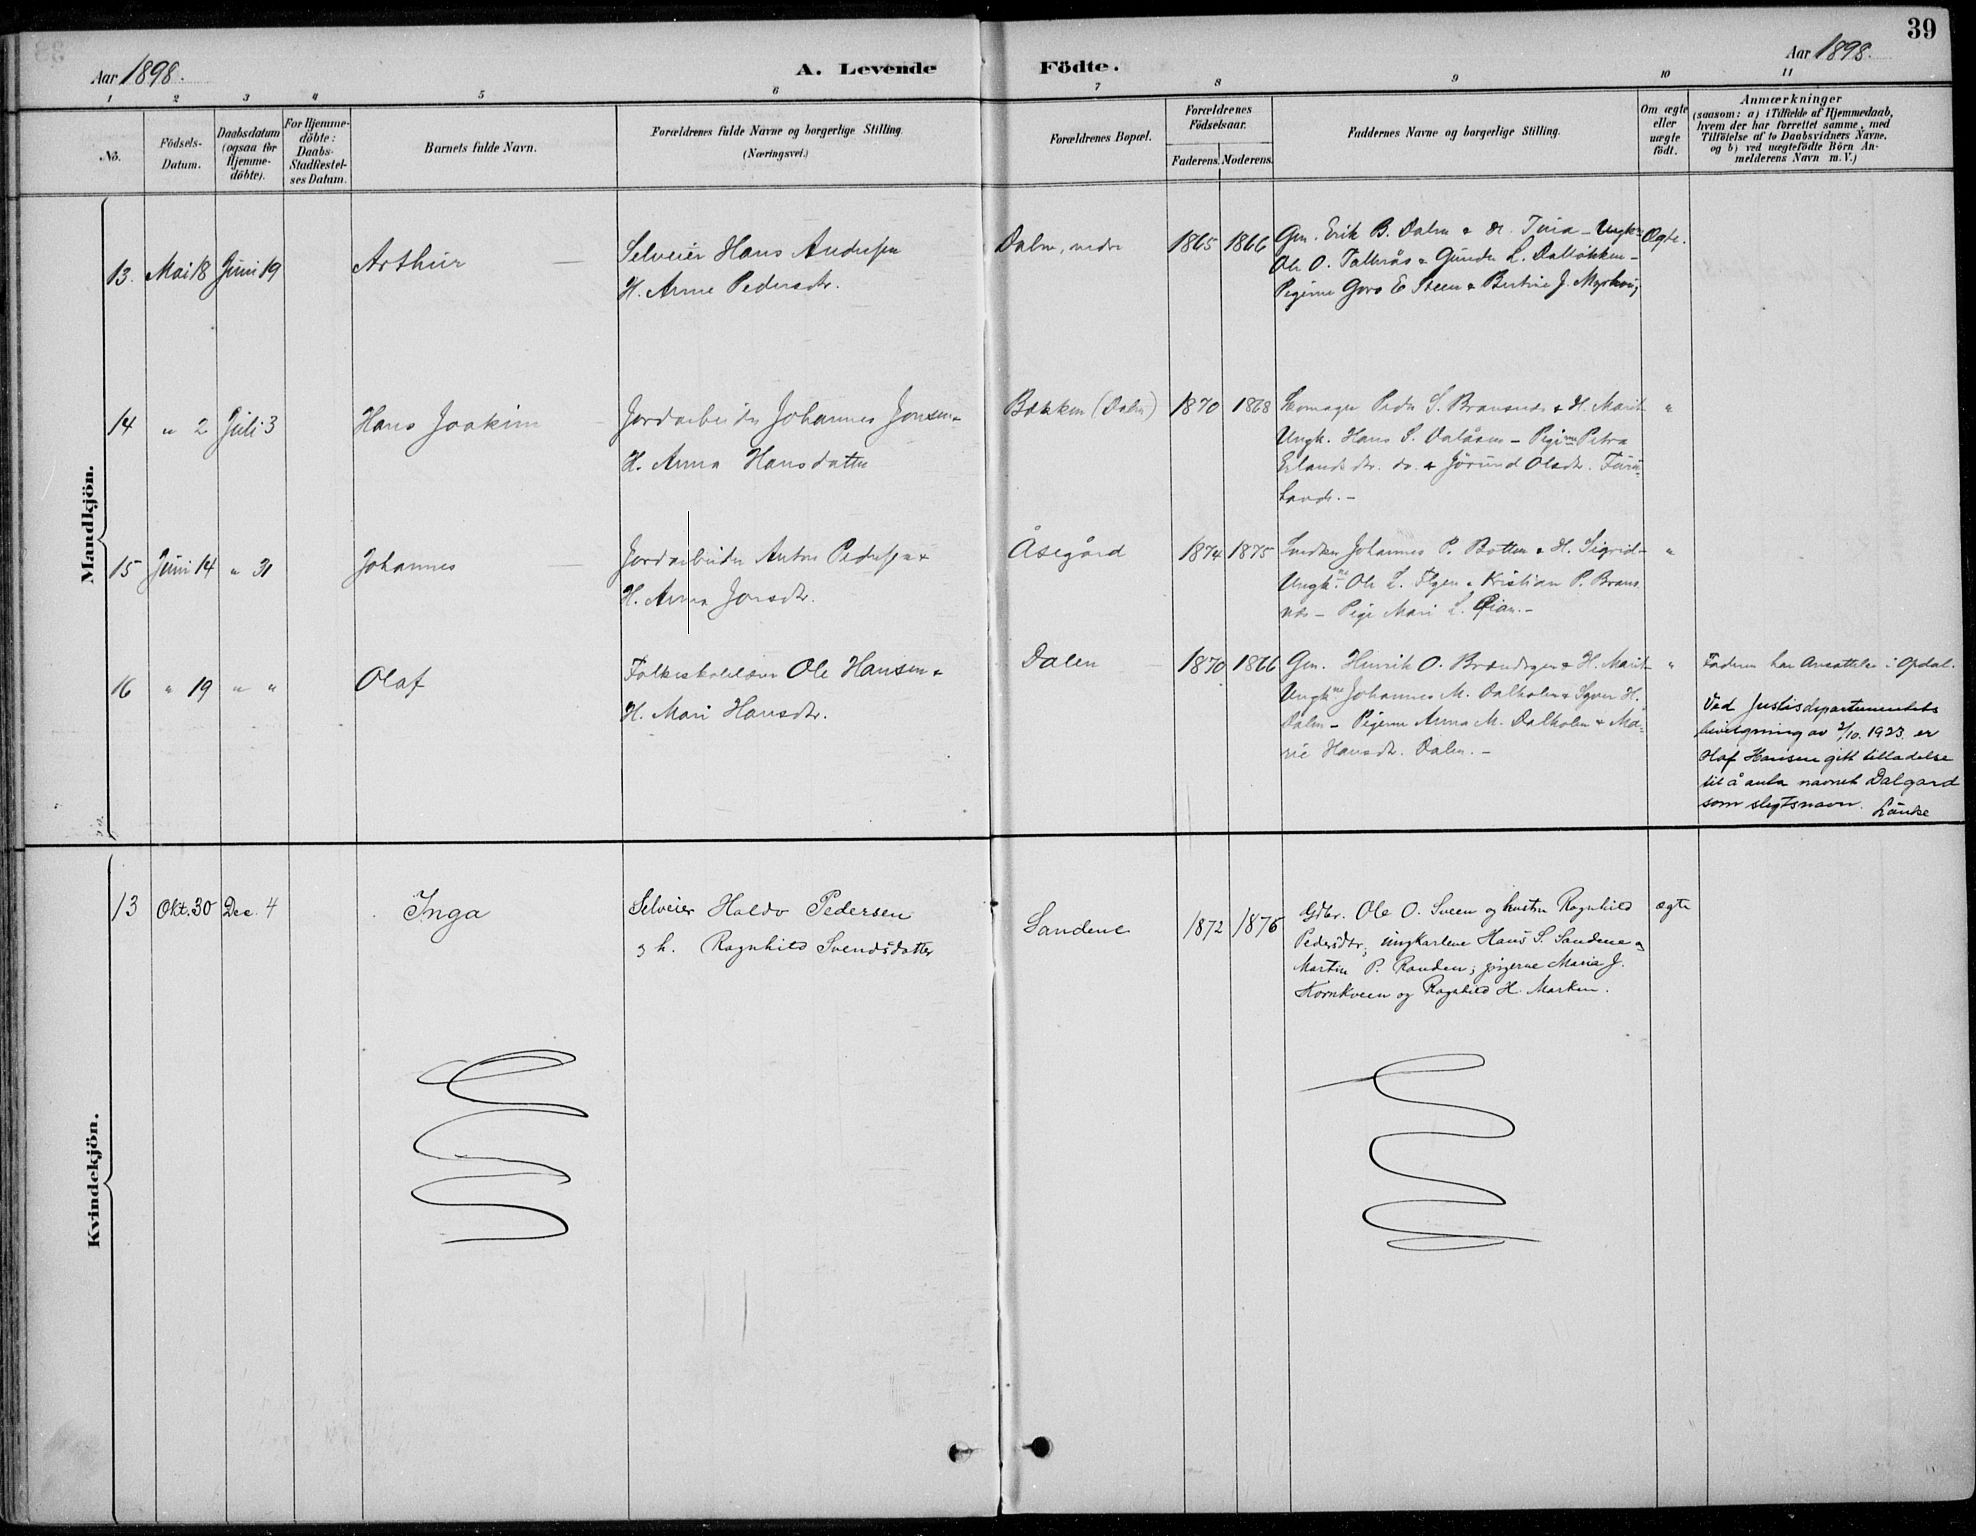 39
Aar 1898.
A. Levende
Födte.
Aar 1898.
1 2 3 4 5 6 7 8 9 10 11
No.
Födsels-
Datum.
Daabsdatum
(ogsaa for
Hjemme-
döbte).
For Hjemme-
döbte:
Daabs-
Stadfæstel-
ses Datum.
Barnets fulde Navn.
Forældrenes fulde Navne og borgerlige Stilling
(Næringsvei.)
Forældrenes Bopæl.
Forældrenes
Födselsaar.
Faderens. Moderens.
Faddernes Navne og borgerlige Stilling.
Om ægte
eller
uægte
födt.
Anmærkninger
(saasom: a) i Tilfælde af Hjemmedaab,
hvem der har forrettet samme, med
Tilföielse af to Daabsvidners Navne,
og b) ved uægtefödte Börn An-
melderens Navn m. V.)
Mandkjön.
13. Mai 18 Juni 19
Arthur
Selveier Hans Andersen
H. Anne Pedersdr.
Dalen, nedre
1865 1866
Gm. Erik B. Dalen & H. Turia – Ungk.
Ole O. Tallerås & Gunder L. Dalløkken –
Pigerne Goro E Steen & Bertine J.
Ægte.
14 " 2 Juli 3
Hans Joakim
Jordarbeider Johannes Jonsen &
H. Anna Hansdatter
Bakken (Dalen)
1870 1868
Peder S. Bransnes & H. Marit
Ungk. Hans S. Dalåsen – Pigerne Petra
Erlandsdr. do. & Jörund Olsdr. Furu-
lande. –
"
15 Juni 14 " 31
Johannes
Jordarbeider Anton Pedersen &
H. Anna Jonsdr.
Åsegård
1874 1875
Snedker Johannes P. Botten & H. Sigrid –
Ungk.ne Ole L. Flyen & Kristian P. Brans-
nes – Pige Mari L. –
"
16 " 19 " "
Olaf
Folkeskolelærer Ole Hansen &
H. Mari Hansdr.
Dalen
1870 1866
Gm. Henrik O. & H. Marit –
Ungk.ne Johannes M. Dalholen & Syver H.
Dalen – Pigerne Anna M. Dalholen & Ma-
rie Hansdr. Dalen. –
"
Faderen har Ansættelse i Opdal.
Ved Justisdepartementets
bevilgning av 2/10. 1923. er
Olaf Hansen gitt tilladelse
til å anta navnet Dalgard
som slegtsnavn. Länke
Kvindekjön.
13 Okt. 30 Dec. 4
Inga
Selveier Haldo Pedersen
og h. Ragnhild Svendsdatter
Sandene
1872 1876
Gdbr. Ole O. Sveen og hustru Ragnhild
Pedersdtr; ungkarlene Hans S. Sandene og
Martin P. Randen; pigerne Maria J.
Kornkveen og Ragnhild H. Marken.
ægte